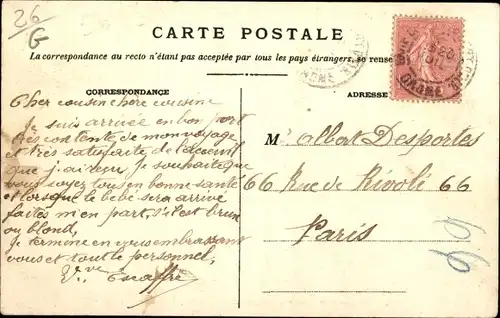 26
G
CARTE POSTALE
La correspondance au recto n'étant pas acceptée par tous les pays étrangers, se rense
CORRESPONDANCE
ADRESSE
Cher cousin chere cousine
Je suis arrivée en bon port
très contente de mon voyage
et très satisfaite de l'acceuil
que j'ai reçu, je souhaite que
vous soyez tous en bonne santé
et lorsque le bébé sera arrivé
faites m'en part, s'il est brun
ou blond,
Je termine en vous embrassant
vous et tout le personnel,
Vve
M. Albert Desportes
66 Rue de Rivoli 66
Paris
ORNE
ORNE